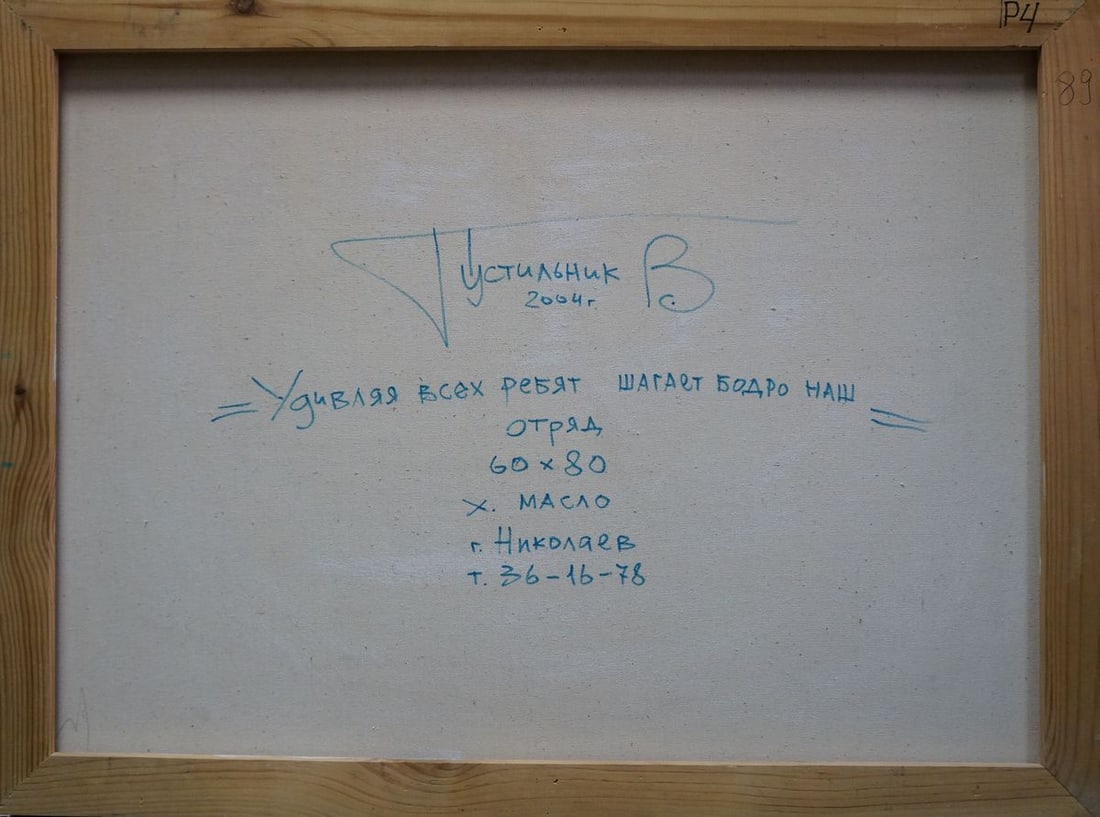 Р4
89
Пустильник В
2004г.
=Удивляя всех ребят шагает бодро наш=
отряд
60 x 80
х. масло
г. Николаев
т. 36-16-78